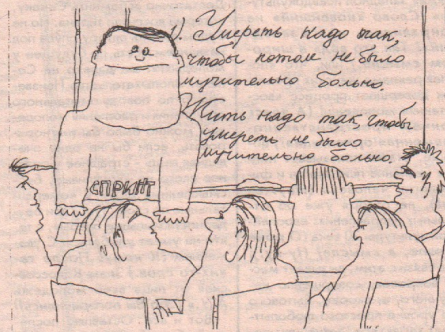 ). Умереть надо так,
чтобы потом не было
мучительно больно.
Жить надо так, чтобы
умереть не было
мучительно больно.
СПРИНТ